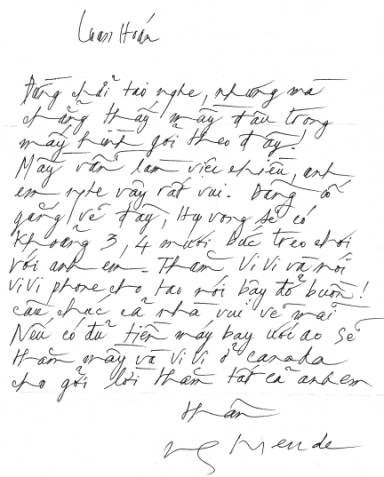 Luân Hoán
Đừng chửi tao nghe, nhưng mà
chẳng thấy mày đâu trong
mấy hình gởi theo đây!
Mày vẫn làm việc nhiều, anh
em nghe vậy rất vui. Đang cố
gắng vẽ đây, Hy vọng sẽ có
khoảng 3, 4 mươi bức treo chơi
với anh em. Thăm Vi Vi và nói
Vi Vi phone cho tao nói bậy đỡ buồn!
Cầu chúc cả nhà vui vẻ mãi
Nếu có đủ tiền máy bay ước ao sẽ
thăm mày và Vi Vi ở Canada
cho gởi lời thăm tất cả anh em
thân